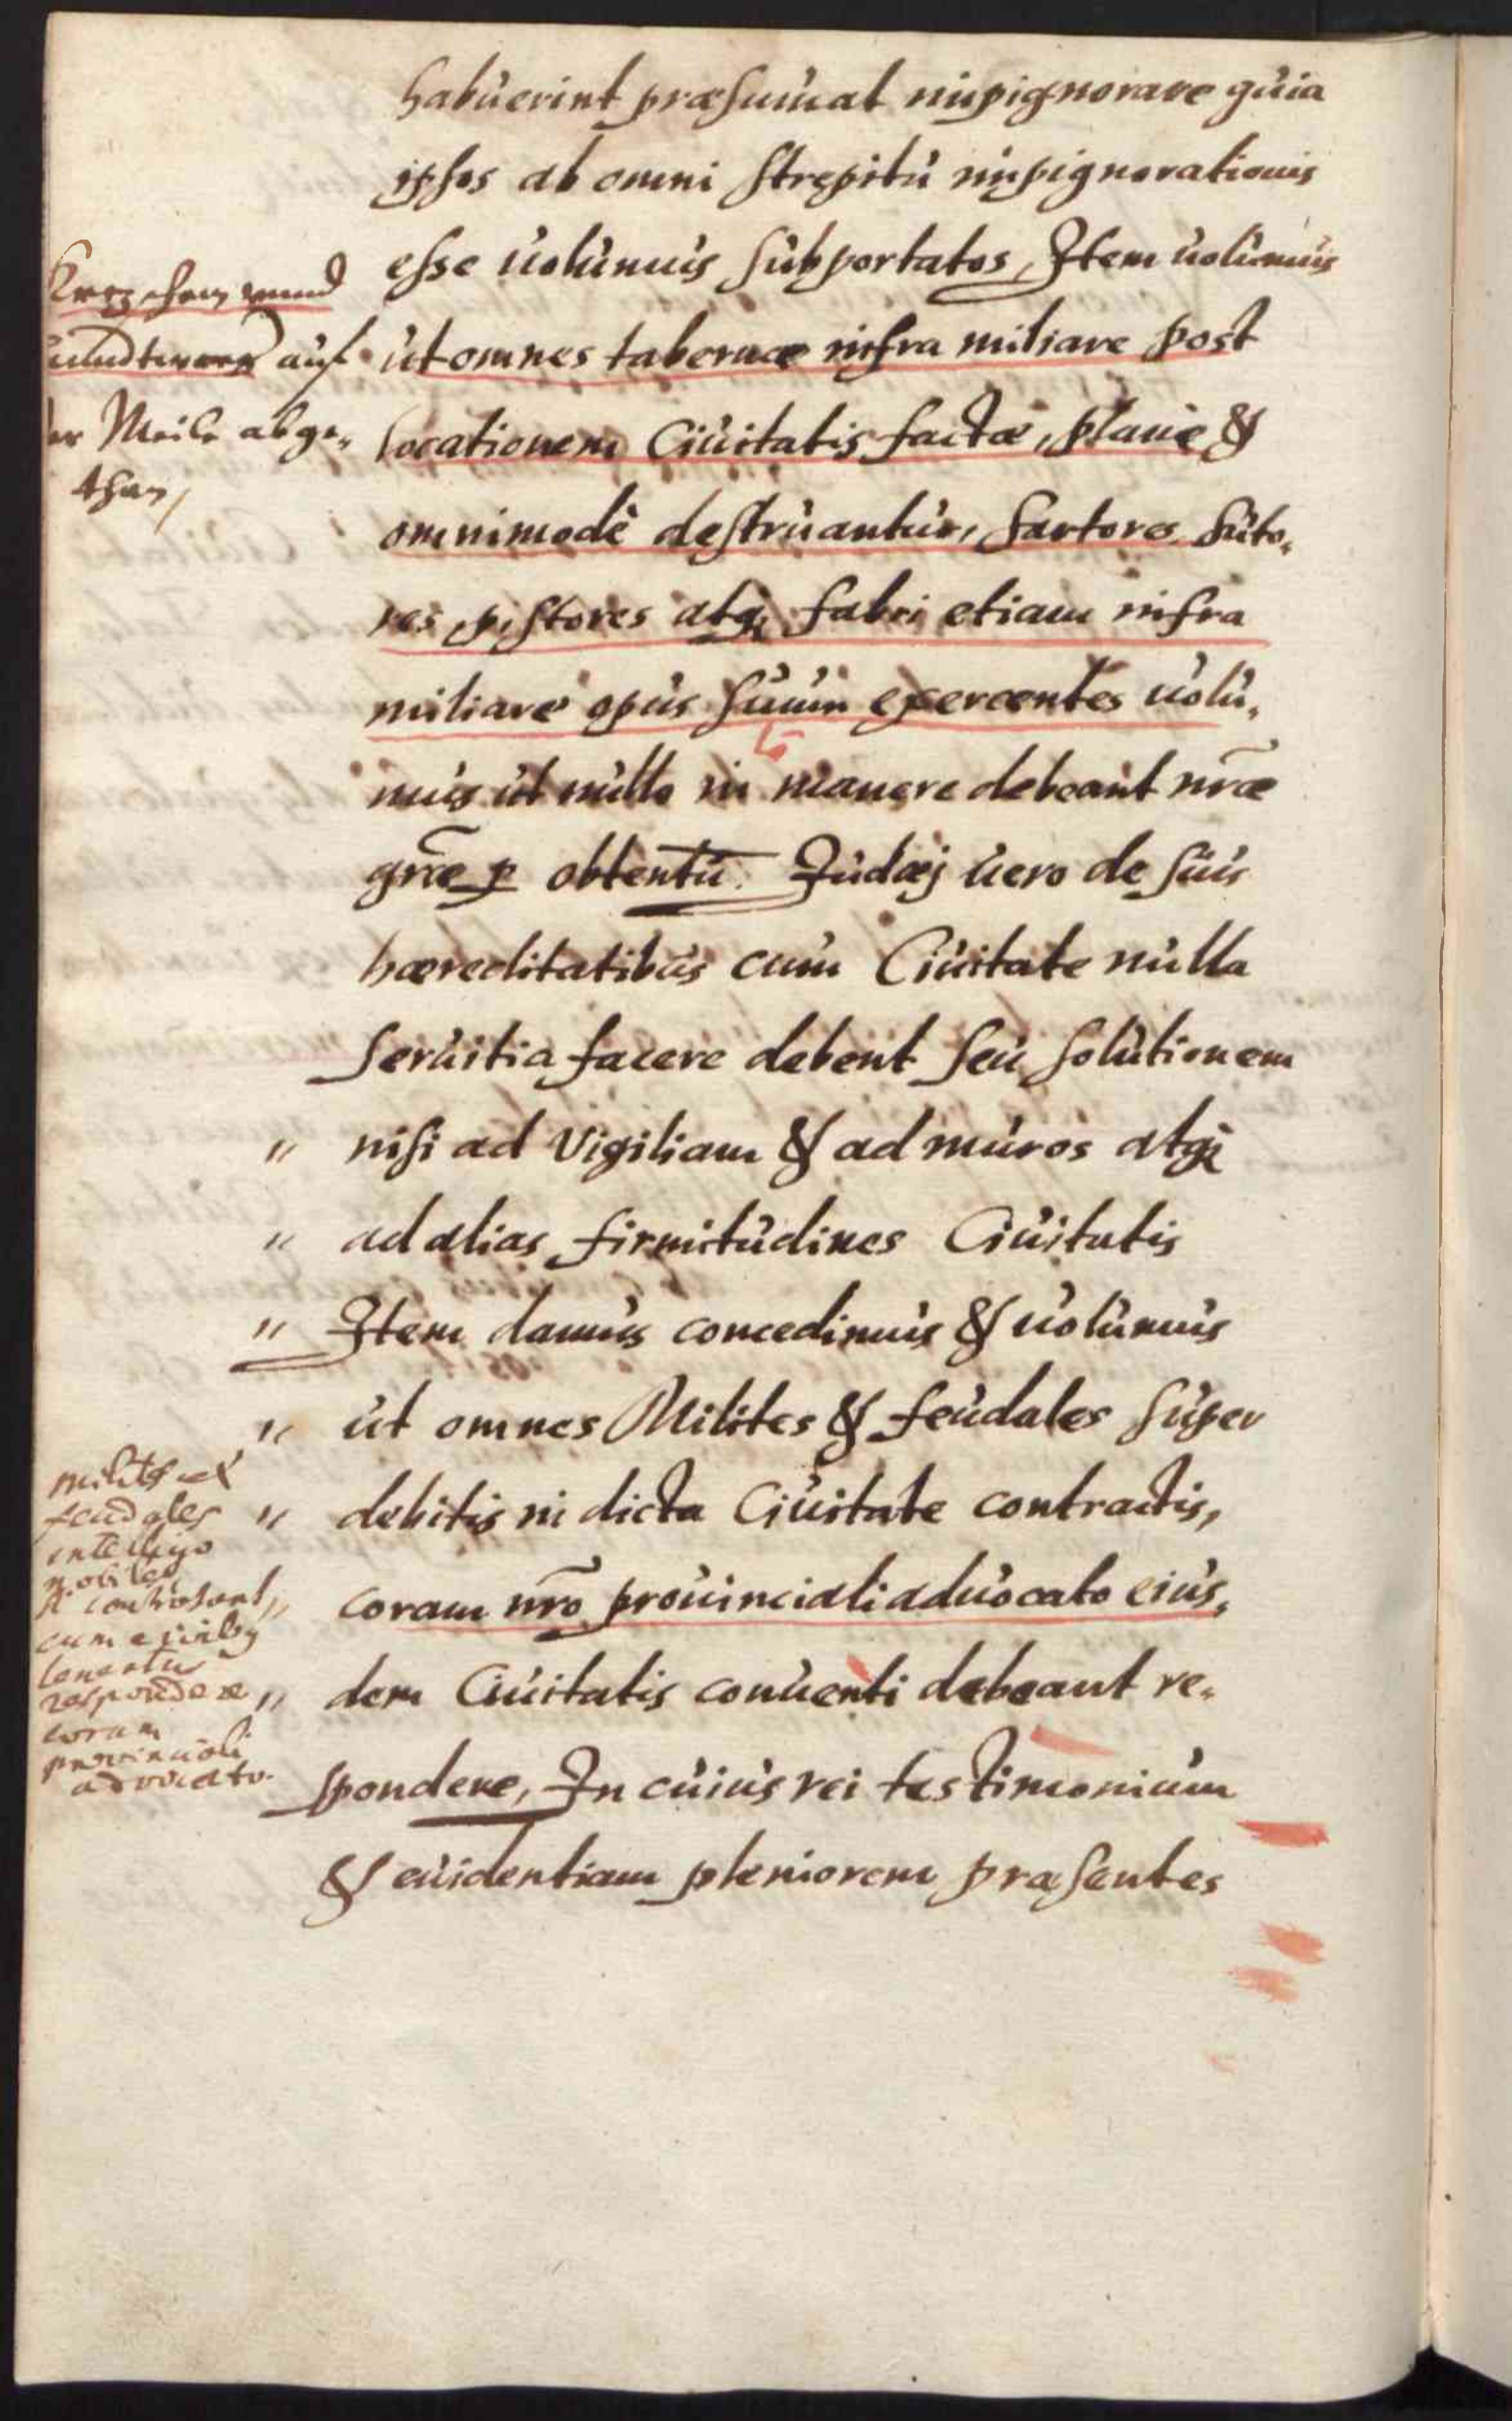 habuerint præsumat inpignorare quia
ipsos ab omni strepitu inpignorationis
esse uolumus subportatos, Item uolumus
ut omnes tabernæ infra miliare post
locationem Ciuitatis factæ, plane &
omnimodè destruantur, Sartores Suto„
res pistores atq; fabri etiam infra
miliare opus suum exercentes uolu„
mus ut nullo in manere debeant nr̃æ
gr̃æ p obtentu. Judæj uero de suis
hæreditatibus cum Ciuitate nulla
Seruitia facere debent seu solutionem
" nisi ad Vigiliam & ad muros atq;
" ad alias firmitudines Ciuitatis
" Item damus concedimus & uolumus
" ut omnes Milites & feudales super
" debitis in dicta Ciuitate contractis,
" coram nr̃o prouinciali aduocato eius„
" dem Ciuitatis conuenti debeant re„
spondere, In cuius rei testimonium
& euidentiam pleniorem præsentes
auf
der Meile abge„
than,
milites et
feudales
intelligo
nobiles
si contrahant
cum ciuib9
tenentur
respondere
coram
provinciali
advocato.